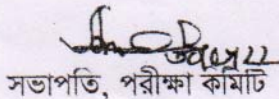 সভাপতি, পরীক্ষা কমিটি